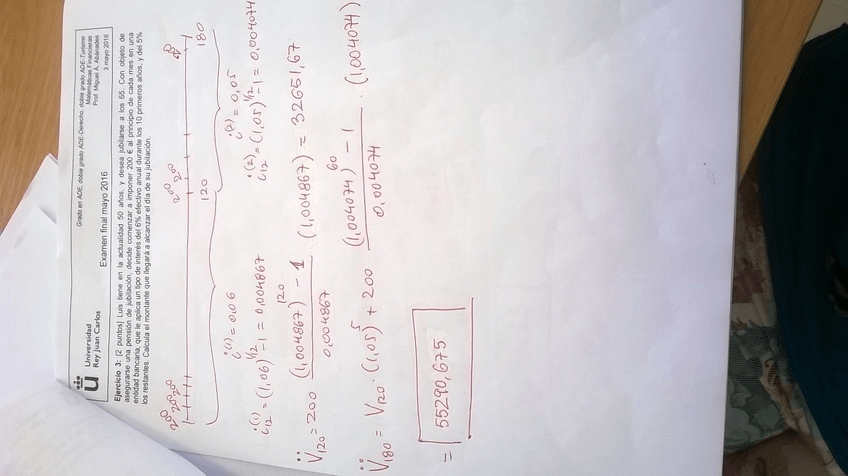 Universidad
Rey Juan Carlos
Grado en ADE, doble grado ADE-Derecho, doble grado ADE-Turismo
Matemáticas Financieras
Prof. Miguel Á. Abánades
Examen final mayo 2016
3 mayo 2016
Ejercicio 3: [2 puntos] Luis tiene en la actualidad 50 años, y desea jubilarse a los 65. Con objeto de
asegurarse una pensión de jubilación, decide comenzar a imponer 200 € al principio de cada mes en una
entidad bancaria, que le aplica un tipo de interés del 6% efectivo anual durante los 10 primeros años, y del 5%
los restantes. Calcula el montante que llegará a alcanzar el día de su jubilación.
200 200 200 200 200
120 180
i^(1) = 0,06
i_12^(1) = (1,06)^1/12 - 1 = 0,004867
i^(2) = 0,05
i_12^(2) = (1,05)^1/12 - 1 = 0,004074
V̈_120 = 200 (1,004867)^120 - 1 / 0,004867 (1,004867) = 32651,67
V̈_180 = V_120 · (1,05)^5 + 200 (1,004074)^60 - 1 / 0,004074 · (1,004074)
= 55290,675